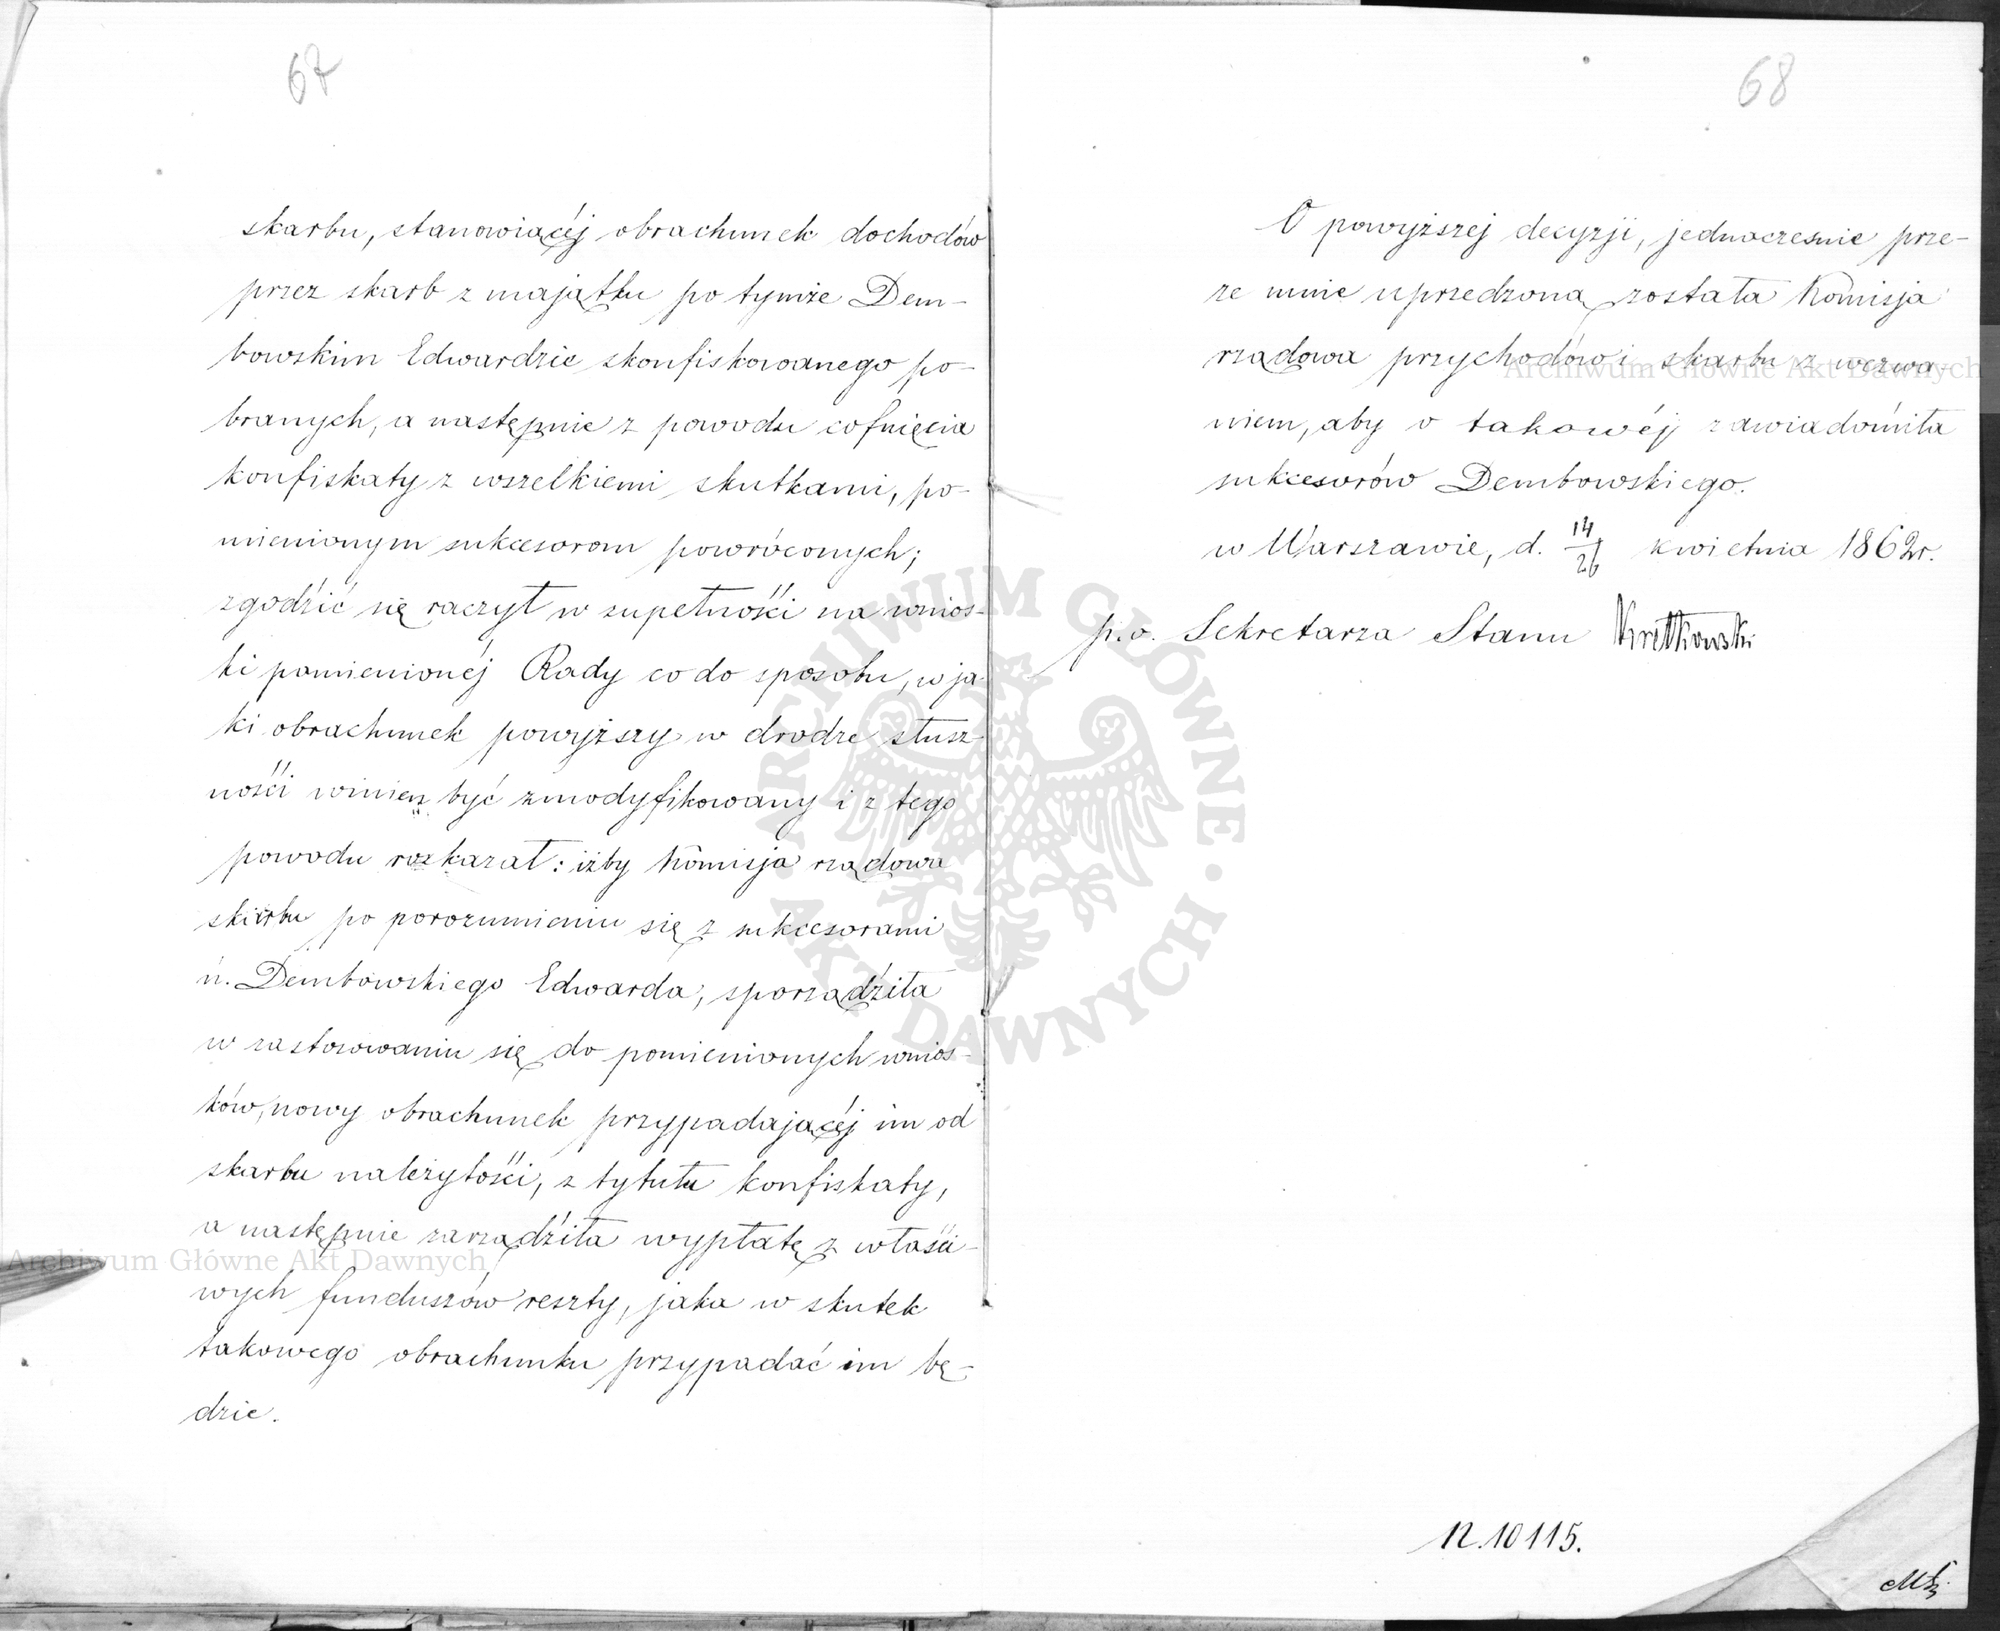 67
skarbu, stanowiącéj obrachunek dochodów
przez skarb z majątku po tymże Dem-
bowskim Edwardzie skonfiskowanego po-
branych, a następnie z powodu cofnięcia
konfiskaty z wszelkiemi skutkami, po-
mienionym sukcesorom powróconych;
zgodźić się raczył w zupełnośći na wnios-
ki pomienionéj Rady co do sposobu, w ja-
ki obrachunek powyższy w drodze słusz-
nośći winien być zmodyfikowany i z tego
powodu rozkazał: iżby Komisja rządowa
skarbu po porozumieniu się z sukcesorami
n. Dembowskiego Edwarda, sporządźiła
w zastosowaniu się do pomienionych wnios-
ków, nowy obrachunek przypadającéj im od
skarbu należytośći, z tytułu konfiskaty,
a następnie zarządźiła wypłatę z właśći-
wych funduszów reszty, jaka w skutek
takowego obrachunku przypadać im bę-
dzie.
68
O powyższej decyzji, jednocześnie prze-
ze mnie uprzedzoną została Komisja
rządowa przychodów i skarbu z wezwa-
niem, aby o takowéj zawiadómiła
sukcesorów Dembowskiego.
w Warszawie, d. 14/26 kwietnia 1862r.
p.o. Sekretarza Stanu Krettkowski
N. 10115.
Archiwum Główne Akt Dawnych
Archiwum Główne Akt Dawnych
ARCHIWUM GŁÓWNE · AKT DAWNYCH ·